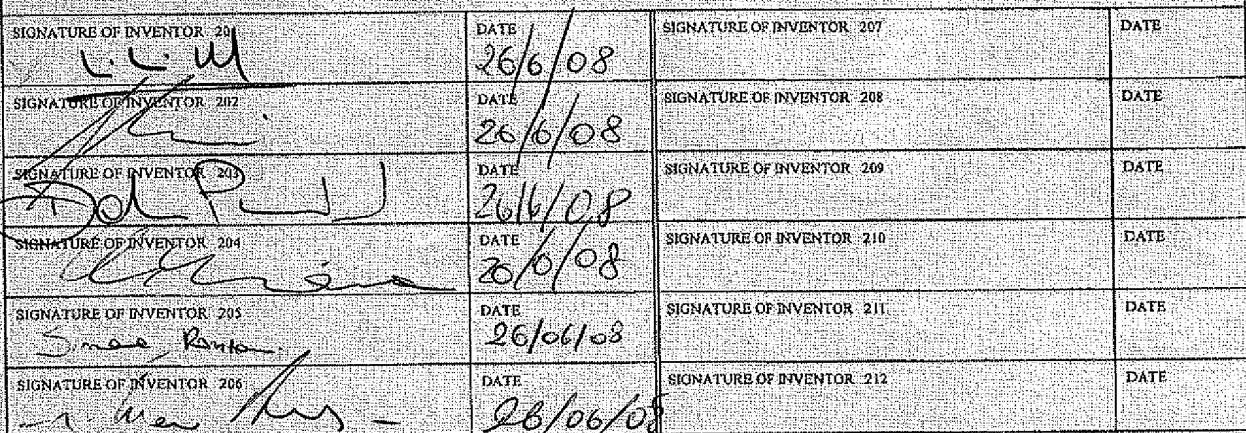 SIGNATURE OF INVENTOR 201 DATE SIGNATURE OF INVENTOR 207 DATE
26/6/08
SIGNATURE OF INVENTOR 202 DATE SIGNATURE OF INVENTOR 208 DATE
26/6/08
SIGNATURE OF INVENTOR 203 DATE SIGNATURE OF INVENTOR 209 DATE
26/6/08
SIGNATURE OF INVENTOR 204 DATE SIGNATURE OF INVENTOR 210 DATE
26/6/08
SIGNATURE OF INVENTOR 205 DATE SIGNATURE OF INVENTOR 211 DATE
26/06/08
SIGNATURE OF INVENTOR 206 DATE SIGNATURE OF INVENTOR 212 DATE
26/06/08